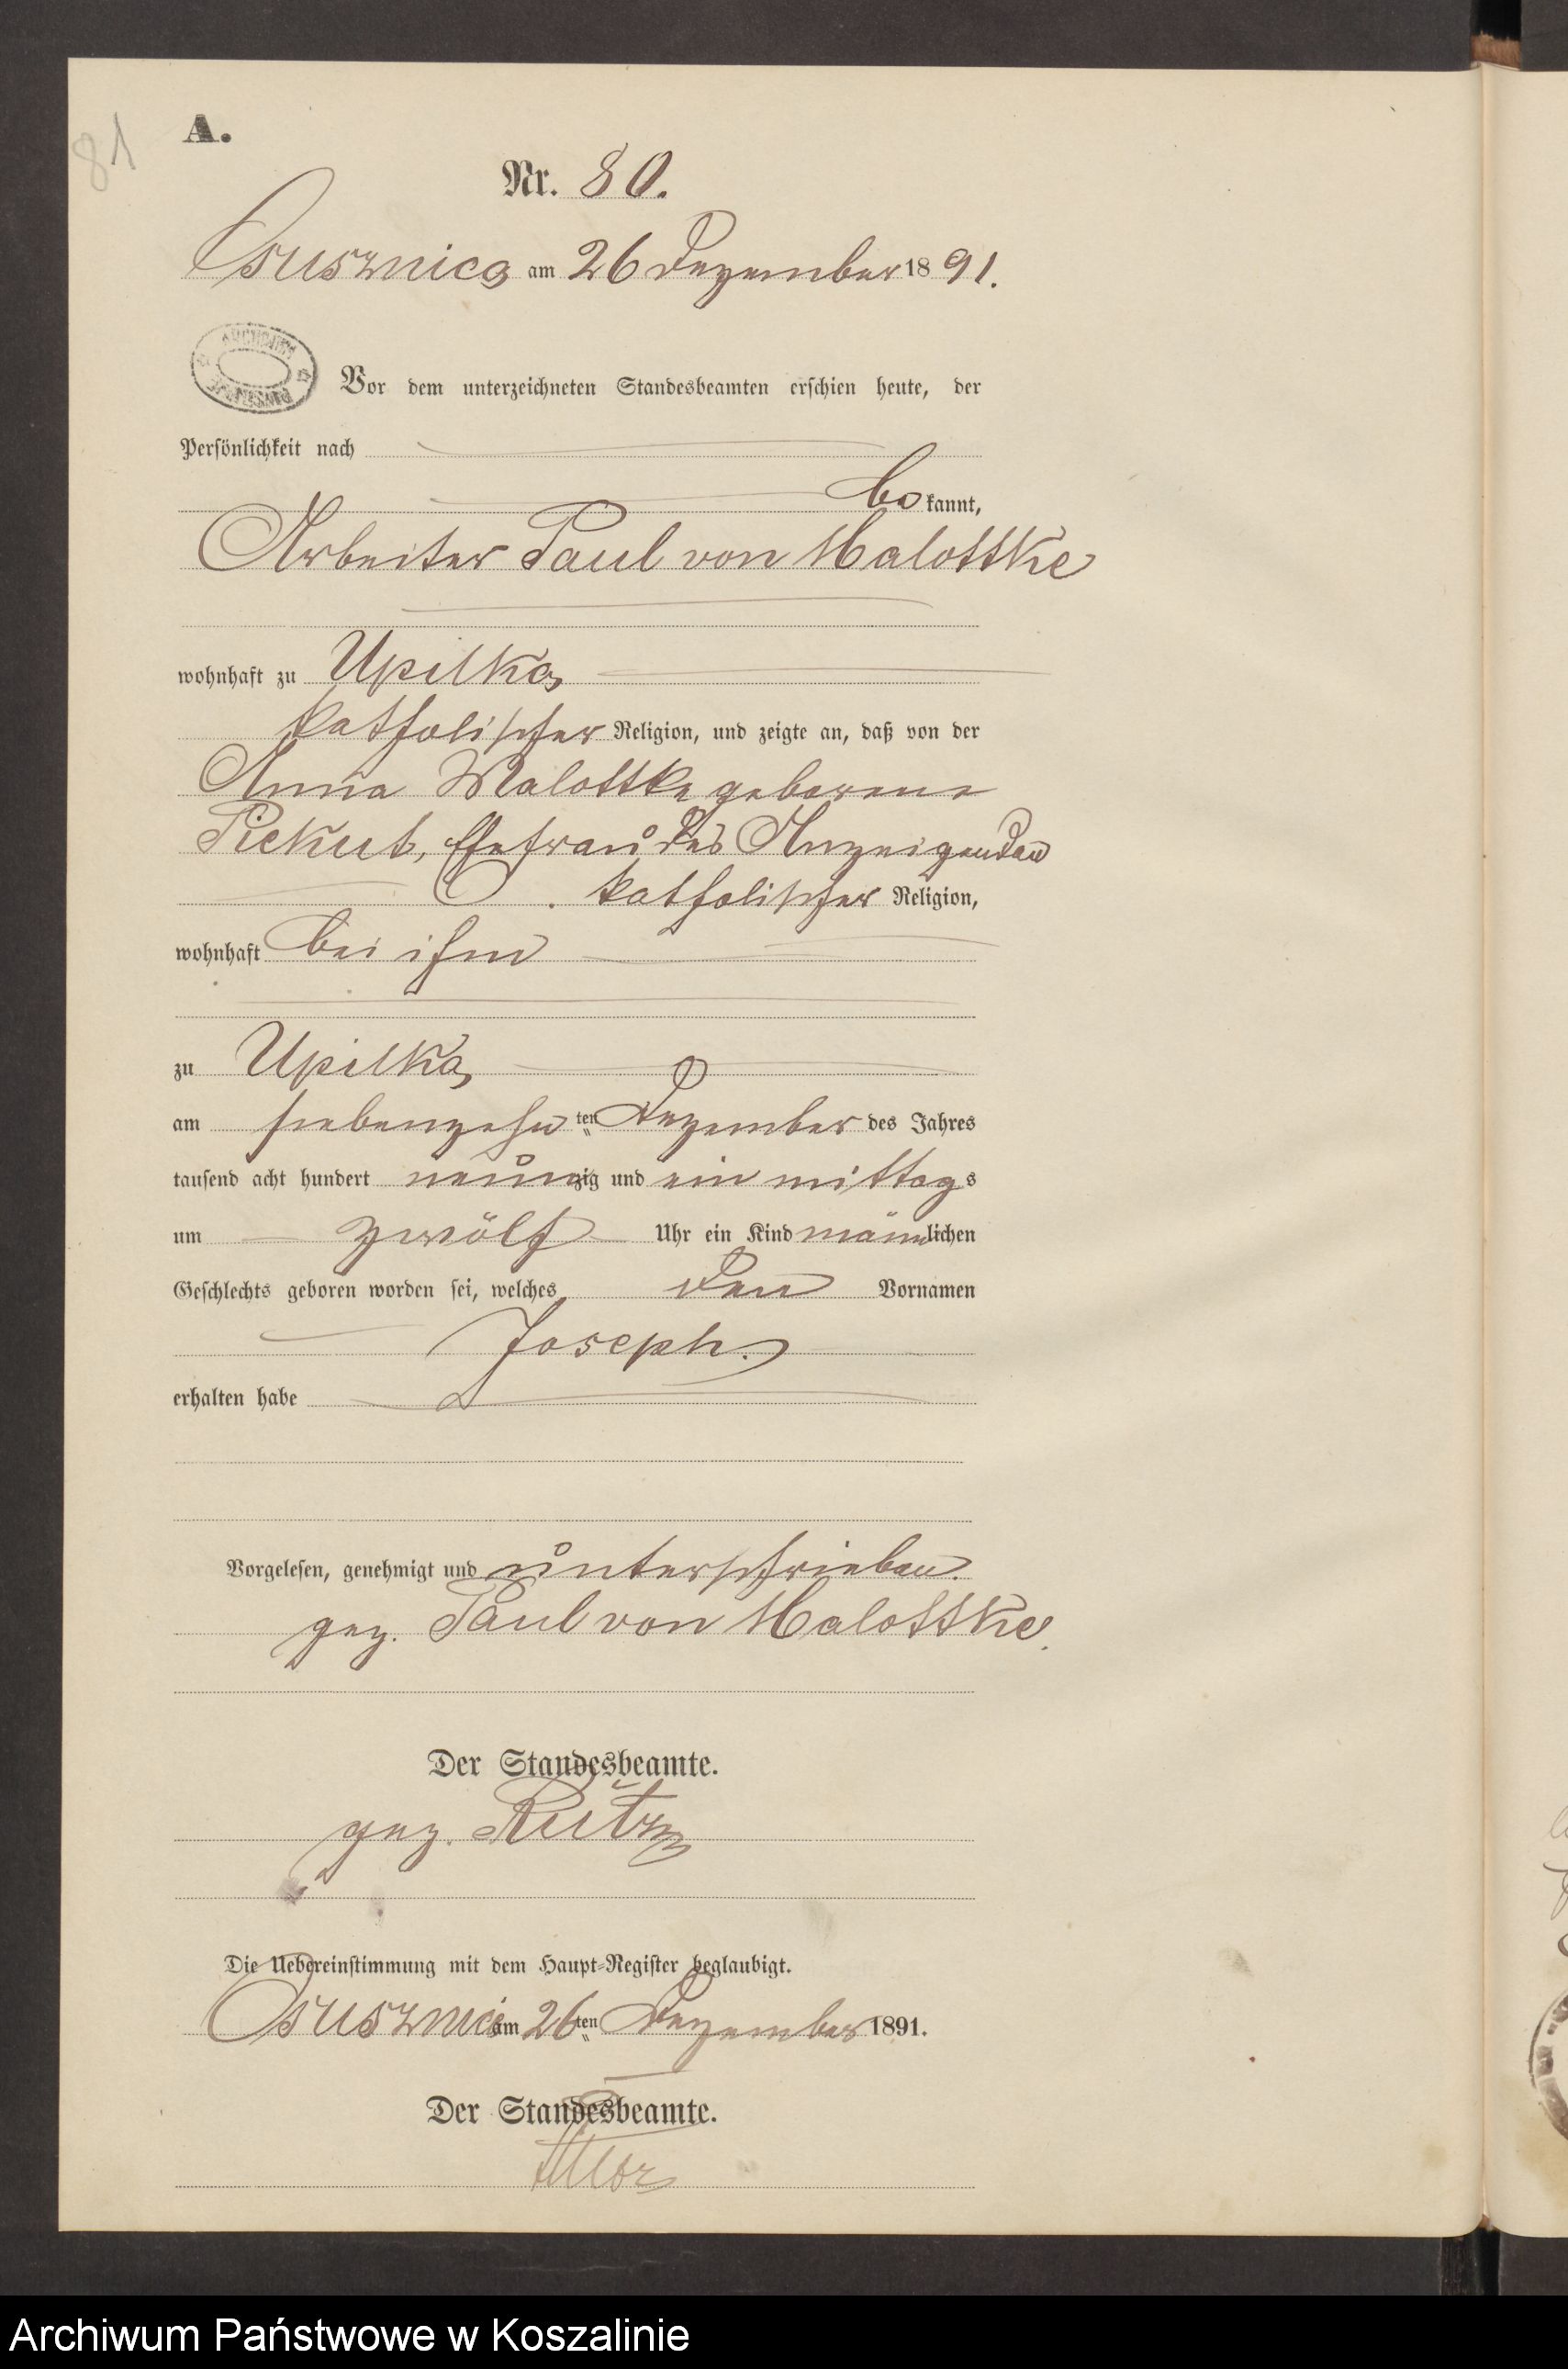 81
A.
Nr. 80.
Osusznica am 26 Dezember 1891.
Vor dem unterzeichneten Standesbeamten erschien heute, der
Persönlichkeit nach
be kannt,
Arbeiter Paul von Malottke
wohnhaft zu Upilka
katholischer Religion, und zeigte an, daß von der
Anna Malottke geborene
Piekut, Ehefrau des Anzeigenden
katholischer Religion,
wohnhaft bei ihm
zu Upilka
am siebenzehnten Dezember des Jahres
tausend acht hundert neunzig und ein mittags
um zwölf Uhr ein Kind männlichen
Geschlechts geboren worden sei, welches den Vornamen
Joseph.
erhalten habe
Vorgelesen, genehmigt und unterschrieben.
gez. Paul von Malottke.
Der Standesbeamte.
gez.
Die Uebereinstimmung mit dem Haupt-Register beglaubigt.
Osusznica am 26ten Dezember 1891.
Der Standesbeamte.
Archiwum Państwowe w Koszalinie